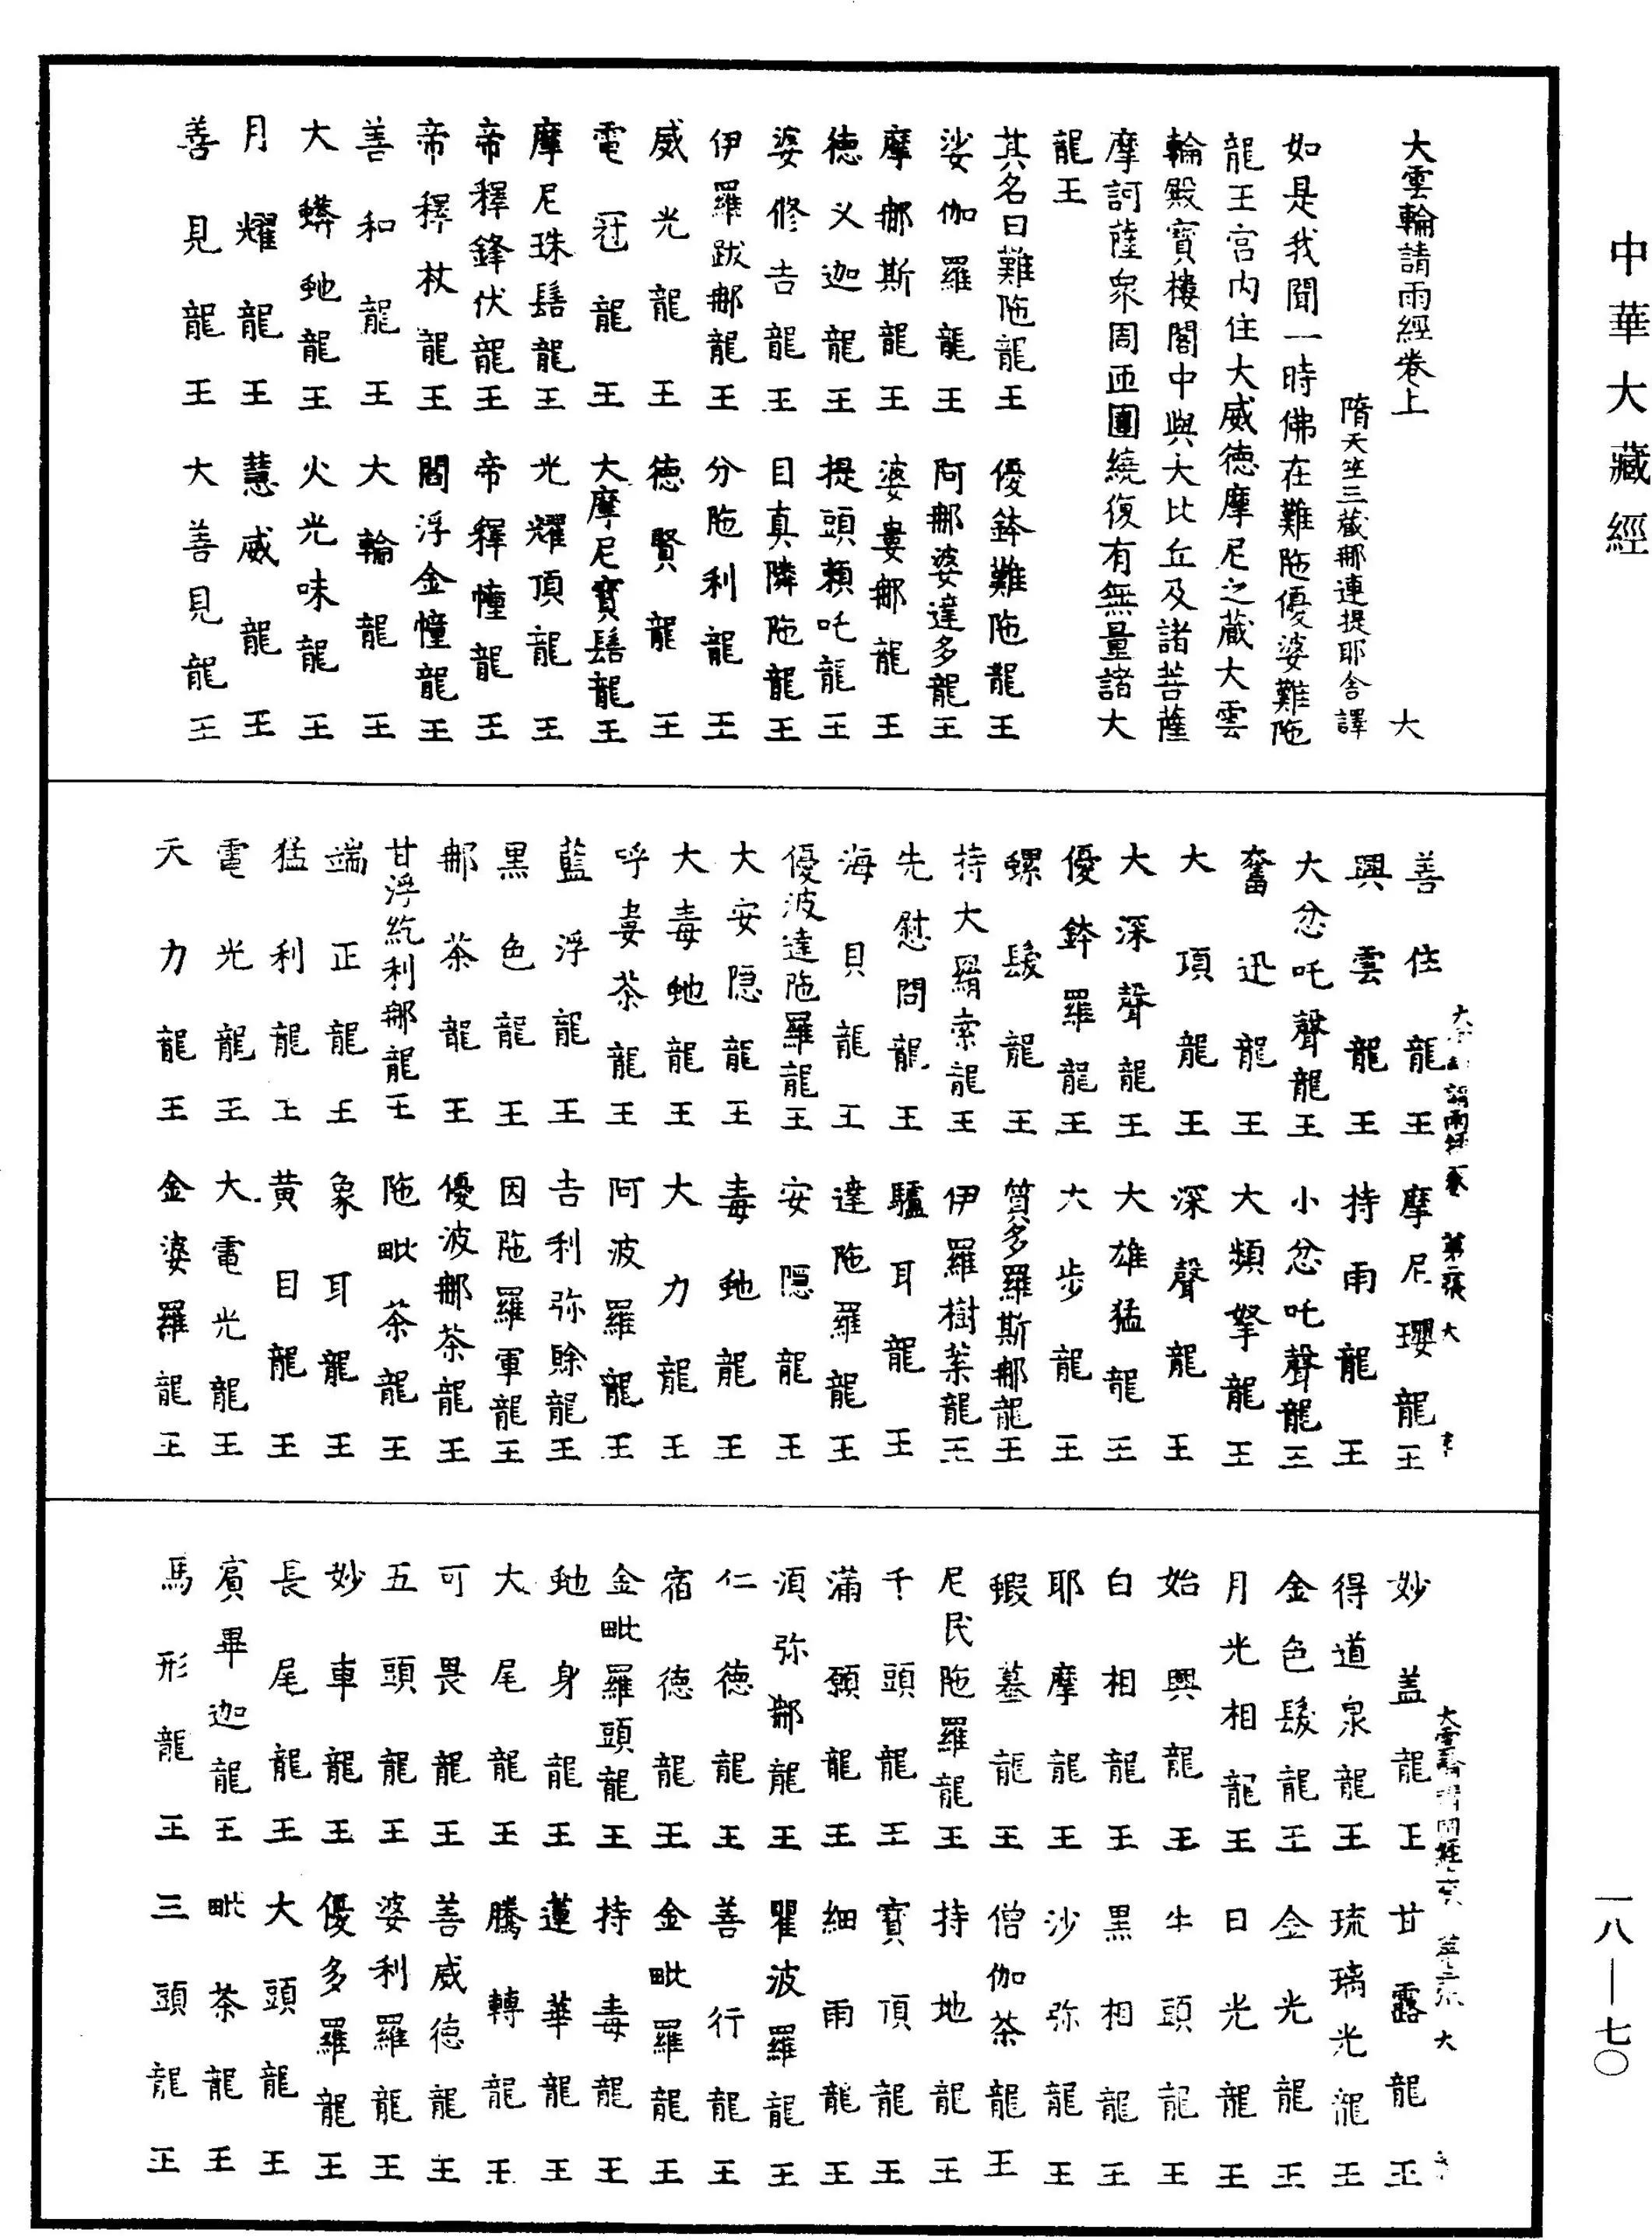 中華大藏經
大雲輪請雨經卷上 大
隋天竺三藏那連提耶舍譯
如是我聞一時佛在難陁優婆難陁
龍王宫内住大威德摩尼之藏大雲
輪殿寳樓閣中與大比丘及諸菩薩
摩訶薩衆周迊圍繞復有無量諸大
龍王
其名曰難陁龍王 優鉢難陁龍王
娑伽羅龍王 阿那婆達多龍王
摩那斯龍王 婆婁那龍王
德义迦龍王 提頭頼吒龍王
婆修吉龍王 目真隣陁龍王
伊羅跋那龍王 分陁利龍王
威光龍王 德賢龍王
電冠龍王 大摩尼寳髻龍王
摩尼珠髻龍王 光耀頂龍王
帝釋鋒伏龍王 帝釋幢龍王
帝釋杖龍王 閻浮金幢龍王
善和龍王 大輪龍王
大蟒虵龍王 火光味龍王
月耀龍王 慧威龍王
善見龍王 大善見龍王
善住龍王 摩尼瓔龍王
興雲龍王 持雨龍王
大忿吒聲龍王 小忿吒聲龍王
奮迅龍王 大頻拏龍王
大頂龍王 深聲龍王
大深聲龍王 大雄猛龍王
優鉢羅龍王 大步龍王
螺髮龍王 質多羅斯那龍王
持大羂索龍王 伊羅樹葉龍王
先慰問龍王 驢耳龍王
海貝龍王 達陁羅龍王
優波達陁羅龍王 安隱龍王
大安隱龍王 毒虵龍王
大毒虵龍王 大力龍王
呼婁茶龍王 阿波羅龍王
藍浮龍王 吉利弥賖龍王
黑色龍王 因陁羅軍龍王
那茶龍王 優波那茶龍王
甘浮紇利那龍王 陁毗茶龍王
端正龍王 象耳龍王
猛利龍王 黄目龍王
電光龍王 大電光龍王
天力龍王 金婆羅龍王
妙盖龍王 甘露龍王
得道泉龍王 琉璃光龍王
金色髮龍王 金光龍王
月光相龍王 日光龍王
始興龍王 牛頭龍王
白相龍王 黑相龍王
耶摩龍王 沙弥龍王
蝦蟇龍王 僧伽茶龍王
尼民陁羅龍王 持地龍王
千頭龍王 寳頂龍王
滿願龍王 細雨龍王
須弥那龍王 瞿波羅龍王
仁德龍王 善行龍王
宿德龍王 金毗羅龍王
金毗羅頭龍王 持毒龍王
虵身龍王 蓮華龍王
大尾龍王 騰轉龍王
可畏龍王 善威德龍王
五頭龍王 婆利羅龍王
妙車龍王 優多羅龍王
長尾龍王 大頭龍王
賓畢迦龍王 毗茶龍王
馬形龍王 三頭龍王
一八—七〇